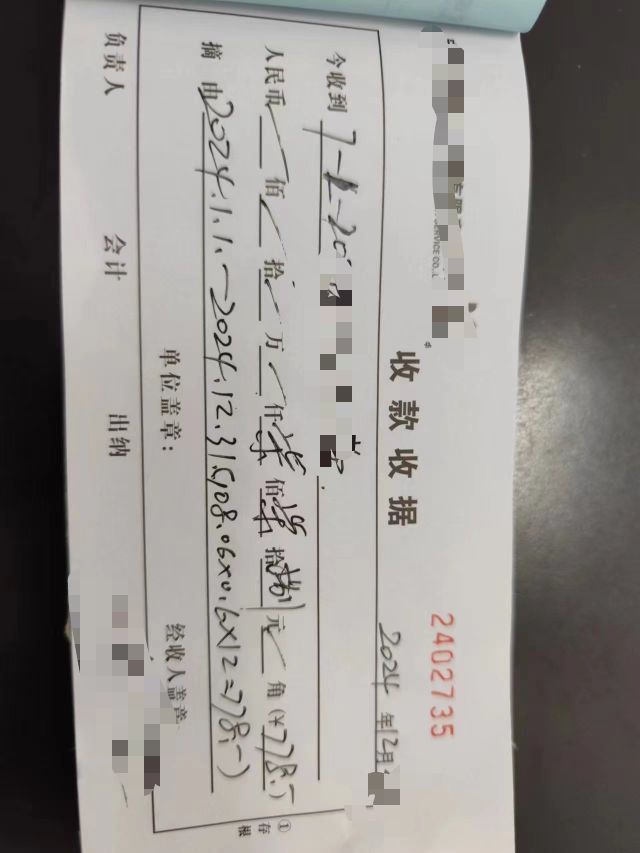 SERVICE CO., L
收款收据
2402735
2024年12月
今收到 7-2-20
人民币 佰 拾 万 仟 柒佰 柒拾捌元 角 (¥778.-
摘由2024.1.1.-2024.12.31.(108.06×0.6×12=778.-)
单位盖章: 经收人盖章
负责人 会计 出纳
①存根